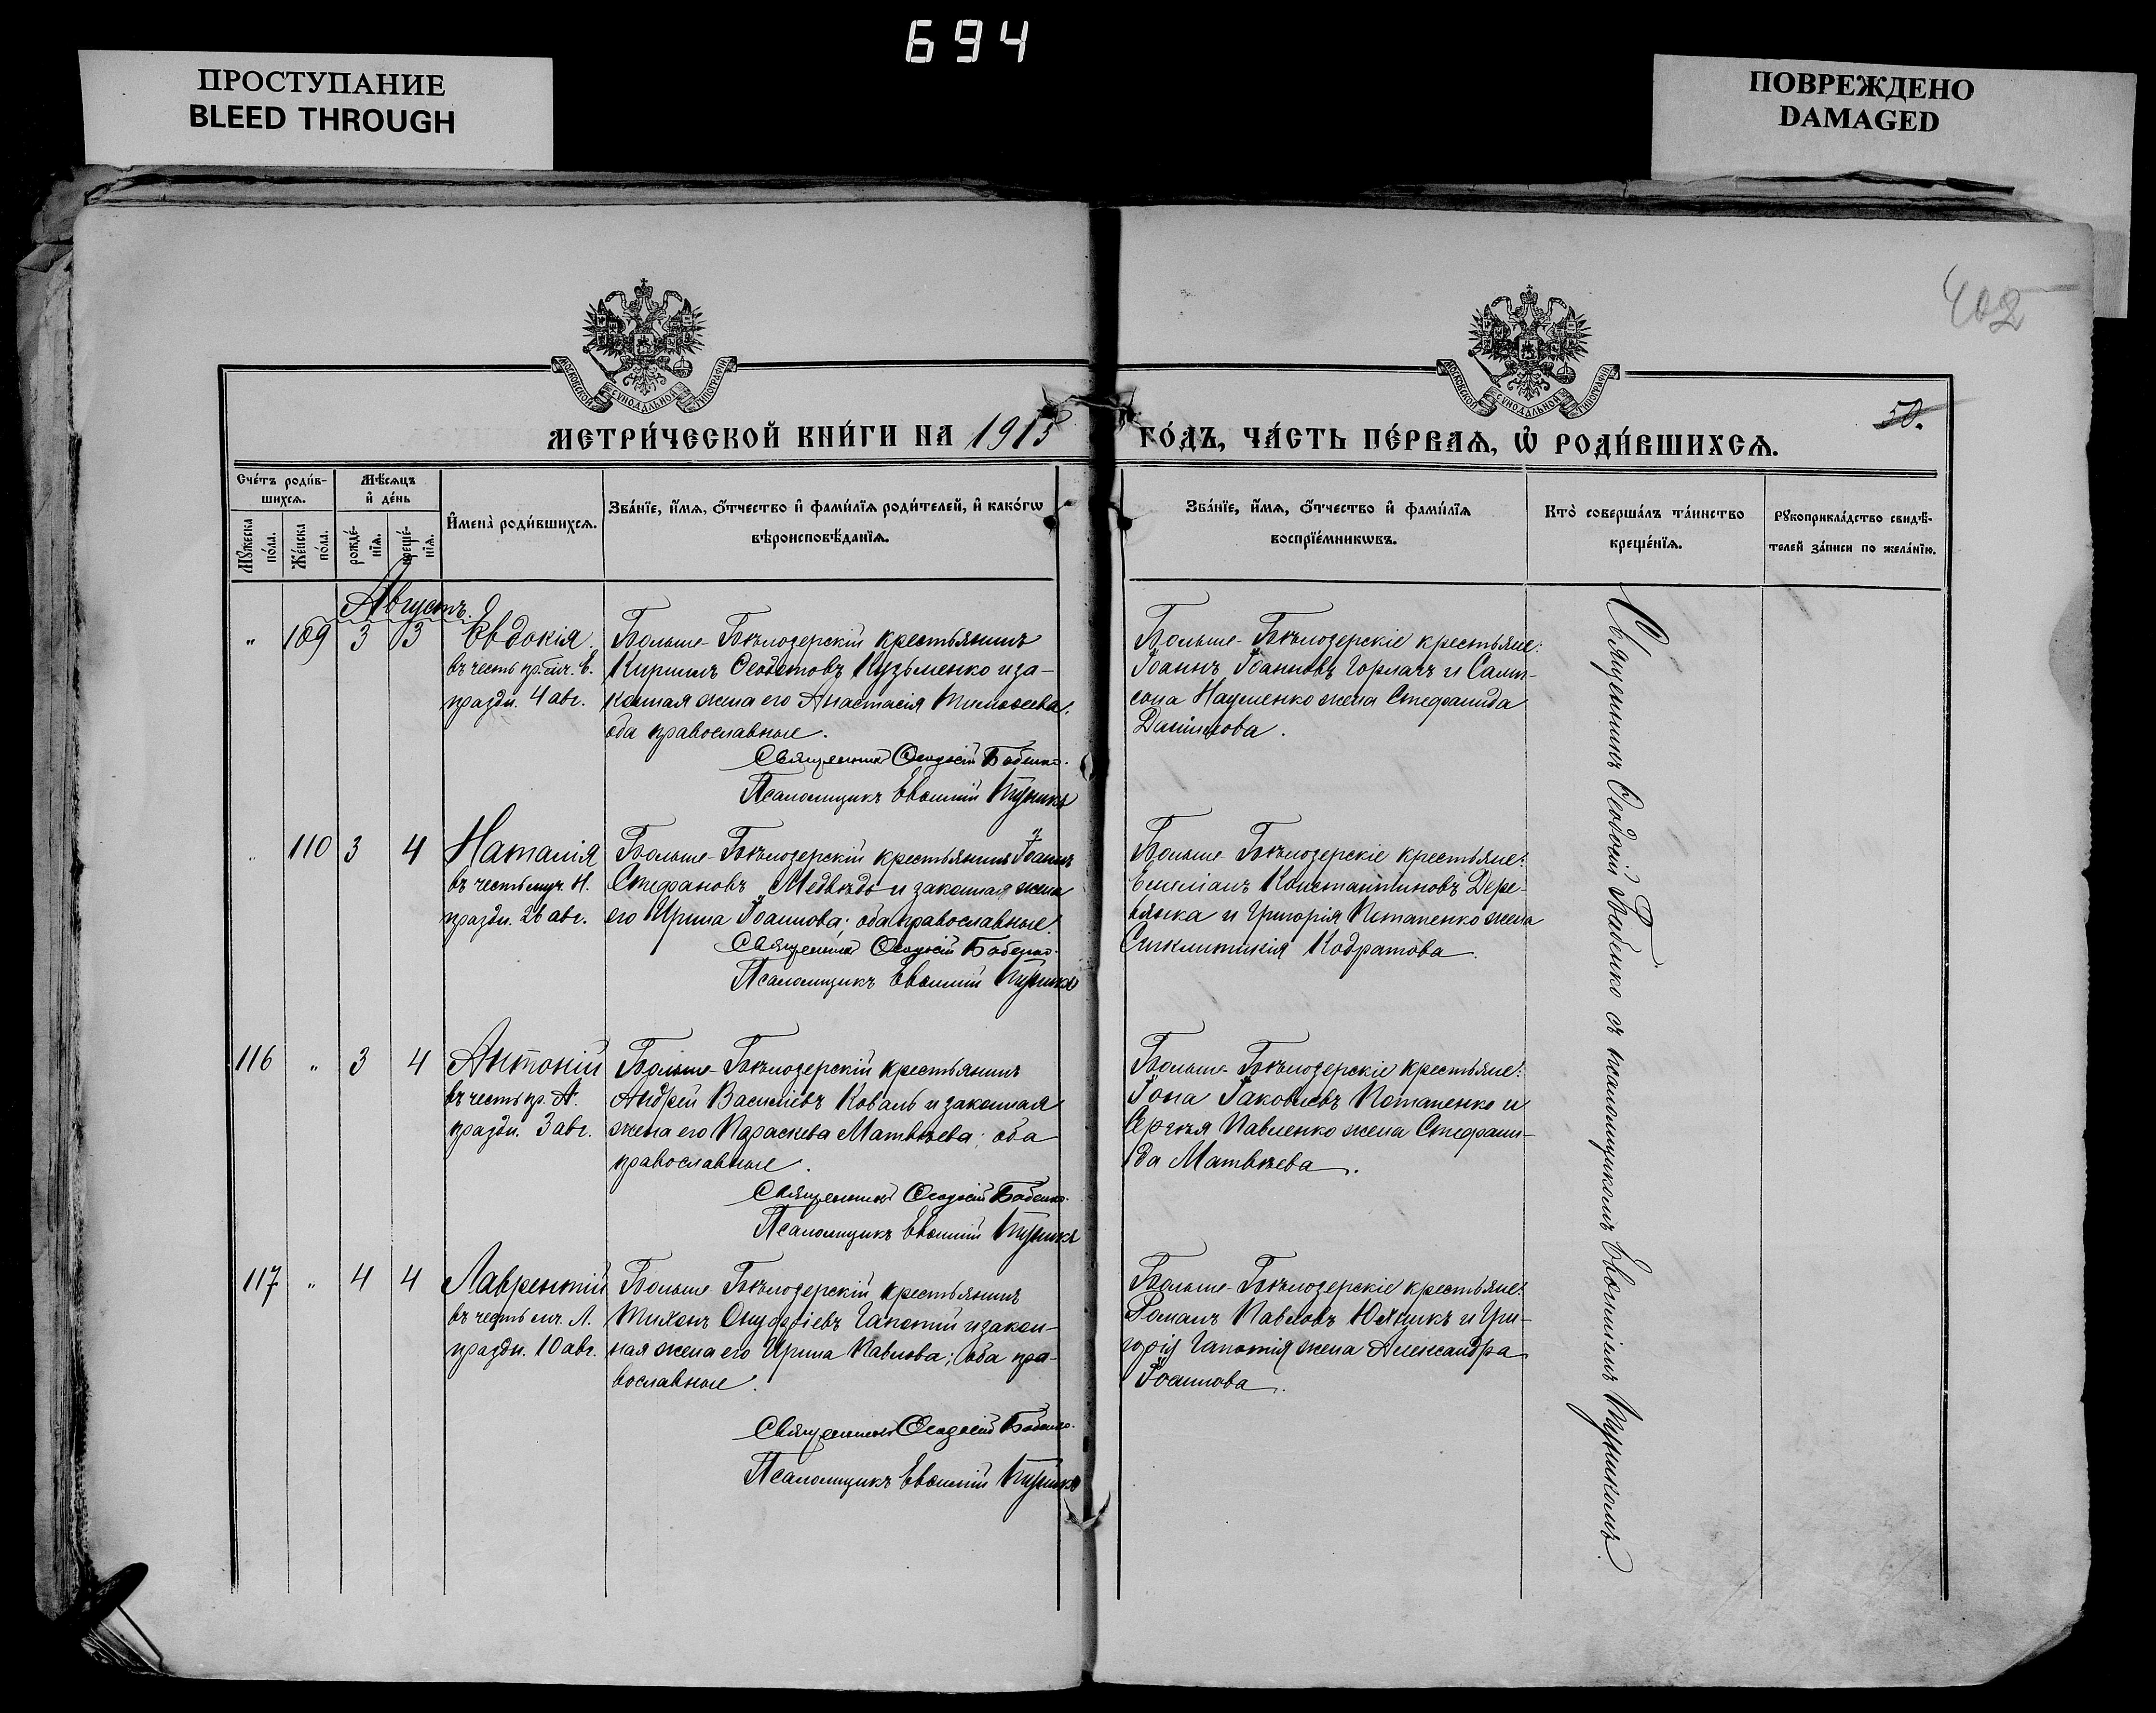 694
ПРОСТУПАНИЕ
BLEED THROUGH
ПОВРЕЖДЕНО
DAMAGED
402
50.
МОСКОВСКОЙ СѴНОДАЛЬНОЙ ТИПОГРАФІИ
МОСКОВСКОЙ СѴНОДАЛЬНОЙ ТИПОГРАФІИ
МЕТРИ́ЧЕСКОЙ КНИ́ГИ НА 1915
ГО́ДЪ, ЧА́СТЬ ПЕ́РВАѦ, Ѽ РОДИ́ВШИХСѦ.
Сче́тъ роди́в-
шихсѧ.
Мѣ́сѧцъ
и҆ де́нь
Мꙋ́жеска
по́ла.
Же́нска
по́ла.
рожде́-
нїѧ.
креще́-
нїѧ.
И҆мена̀ роди́вшихсѧ.
Зва́нїе, и҆́мѧ, ѻ҆́тчество и҆ фами́лїѧ роди́телей, и҆ како́гѡ
вѣроисповѣ́данїѧ.
Зва́нїе, и҆́мѧ, ѻ҆́тчество и҆ фами́лїѧ
воспрїе́мникѡвъ.
Кто̀ соверша́лъ та́инство
креще́нїѧ.
Рꙋкоприкла́дство свидѣ́-
телей за́писи по жела́нїю.
Августъ.
" 109 3 3 Евдокія.
въ честь пр. мч. Е.
праздн. 4 авг.
Больше-Бѣлозерскій крестьянинъ
Кириллъ Ѳеодотовъ Кузьменко и за-
конная жена его Анастасія Тимоѳеева;
оба православные.
Священникъ Ѳеодосій Бабенко.
Псаломщикъ Евѳимій Пуникъ
Больше-Бѣлозерскіе крестьяне:
Іоаннъ Іоанновъ Горлачъ и Самп-
сона Науменко жена Стефанида
Данилова.
" 110 3 4 Наталія
въ честь муч. Н.
праздн. 26 авг.
Больше-Бѣлозерскій крестьянинъ Іоаннъ
Стефановъ Медвѣдь и законная жена
его Ирина Іоаннова; оба православные.
Священникъ Ѳеодосій Бабенко.
Псаломщикъ Евѳимій Пуникъ
Больше-Бѣлозерскіе крестьяне:
Емеліанъ Константиновъ Дере-
вянка и Григорія Потапенко жена
Синклитикія Кодратова.
116 " 3 4 Антоній
въ честь пр. А.
праздн. 3 авг.
Больше-Бѣлозерскій крестьянинъ
Андрей Василіевъ Коваль и законная
жена его Параскева Матвѣева; оба
православные.
Священникъ Ѳеодосій Бабенко.
Псаломщикъ Евѳимій Пуникъ
Больше-Бѣлозерскіе крестьяне:
Іона Іаковлевъ Потапенко и
Сергѣя Павленко жена Стефани-
да Матвѣева.
117 " 4 4 Лаврентій
въ честь мч. Л.
праздн. 10 авг.
Больше-Бѣлозерскій крестьянинъ
Тихонъ Онуфріевъ Гапотій и закон-
ная жена его Ирина Павлова; оба пра-
вославные.
Священникъ Ѳеодосій Бабенко.
Псаломщикъ Евѳимій Пуникъ
Больше-Бѣлозерскіе крестьяне:
Романъ Павловъ и Гри-
горія Гапотія жена Александра
Іоаннова.
Священникъ Ѳеодосій Бабенко съ псаломщикомъ Евѳиміемъ Пуникомъ.